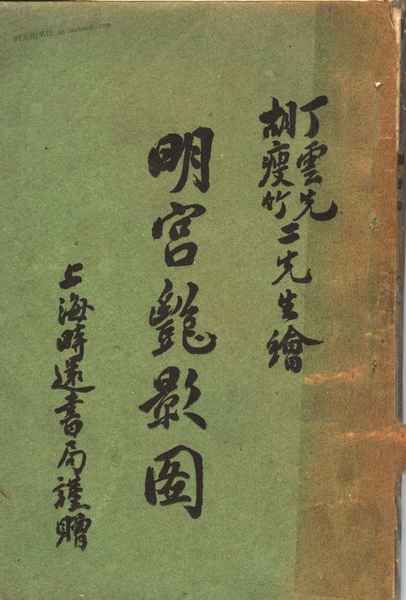 丁雲先
胡瘦竹
二先生繪
明宮豔影圖
上海時還書局謹贈